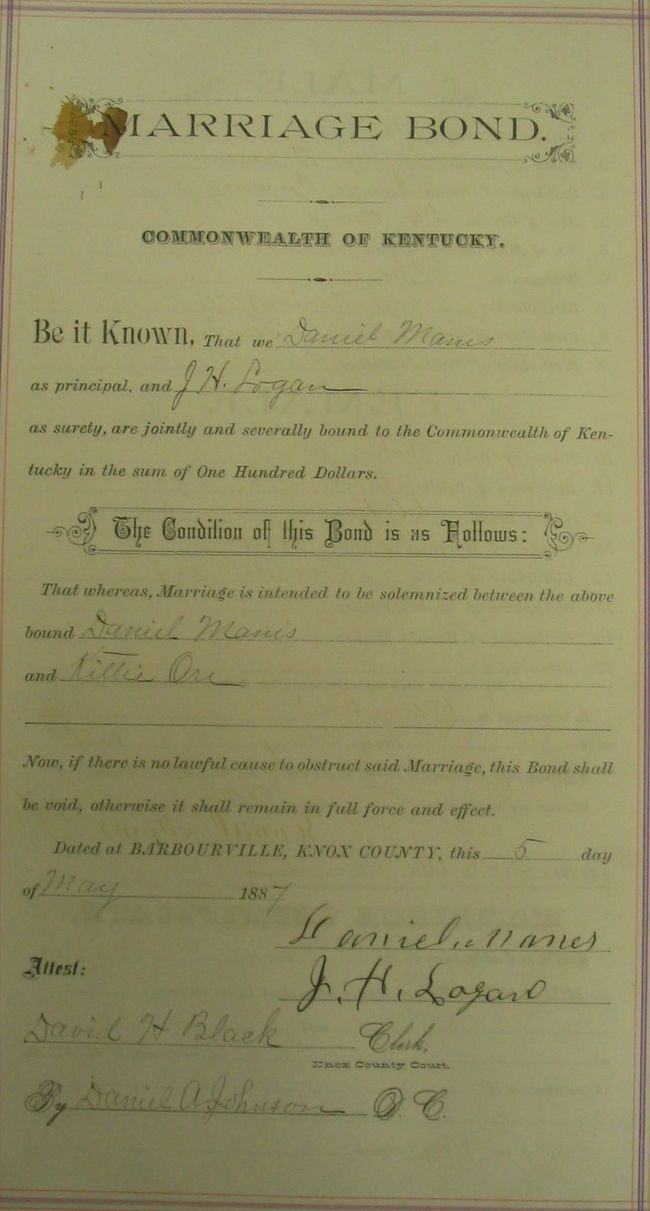 MARRIAGE BOND.
COMMONWEALTH OF KENTUCKY.
Be it Known, That we Daniel Manis
as principal, and J H. Logan
as surety, are jointly and severally bound to the Commonwealth of Ken-
tucky in the sum of One Hundred Dollars.
The Condition of this Bond is as Follows:
That whereas, Marriage is intended to be solemnized between the above
bound Daniel Manis
and Kittie Orr
Now, if there is no lawful cause to obstruct said Marriage, this Bond shall
be void, otherwise it shall remain in full force and effect.
Dated at BARBOURVILLE, KNOX COUNTY, this 5 day
of May 1887
Daniel Manes
Attest:
J. H. Logan
David H Black Clerk.
Knox County Court.
By Daniel A Johnson D. C.